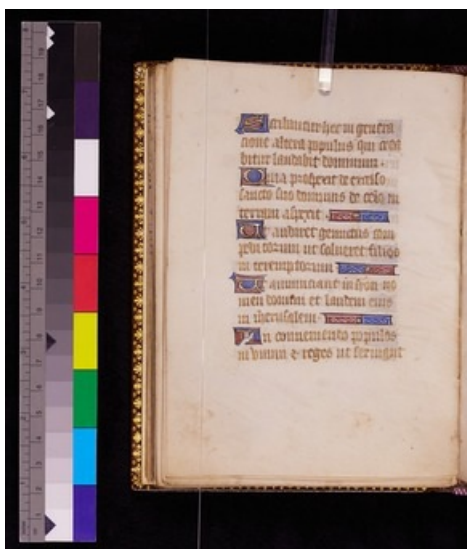 Scribantur hec in genera
cione altera populus qui crea
bitur laudabit dominum.
Quia prospexit de excelso
sancto suo dominus de celo in
terram aspexit.
Ut audiret gemitus com
peditorum ut solueret filios
interemptorum
Ut annuncient in syon no
men domini et laudem eius
in iherusalem.
In conueniendo populos
in unum et reges ut seruiant